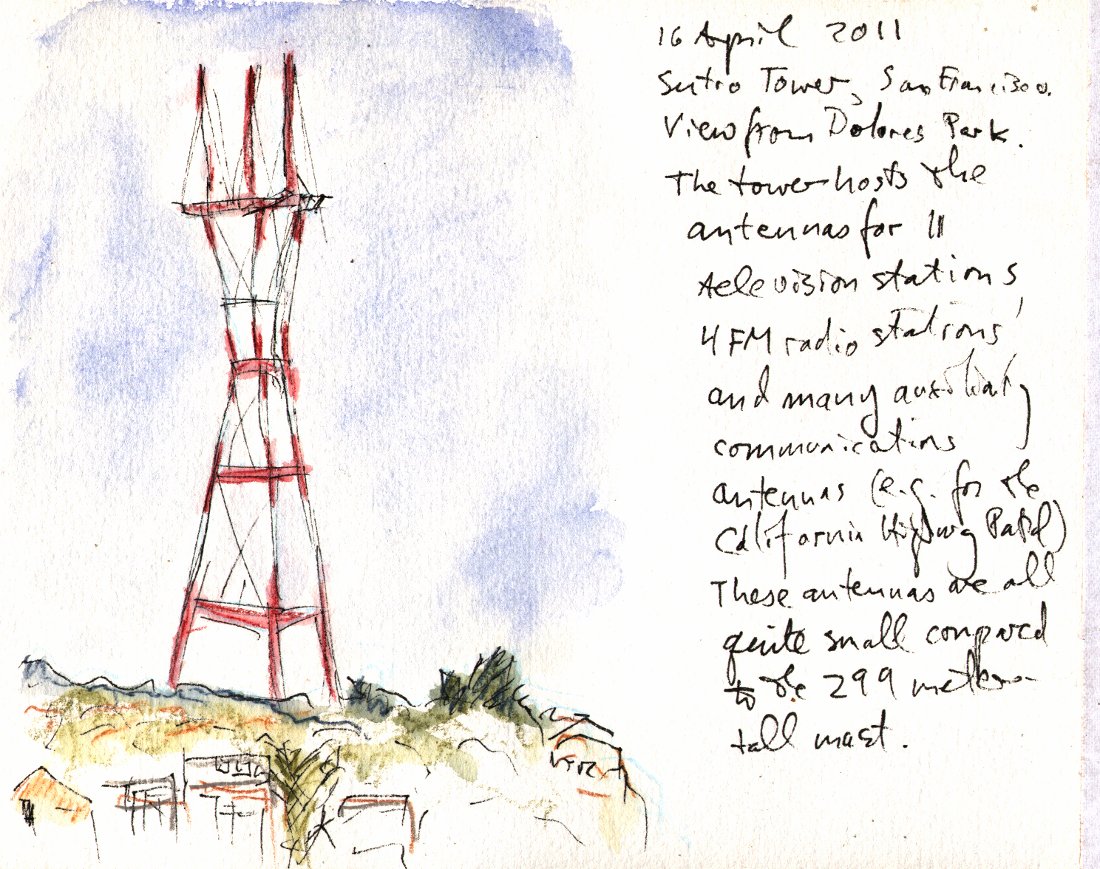 16 April 2011
Sutro Tower, San Francisco.
View from Dolores Park.
The tower hosts the
antennas for 11
television stations,
4 FM radio stations
and many auxiliary
communications
antennas (e.g. for the
California Highway Patrol)
These antennas are all
quite small compared
to the 299 meters
tall mast.